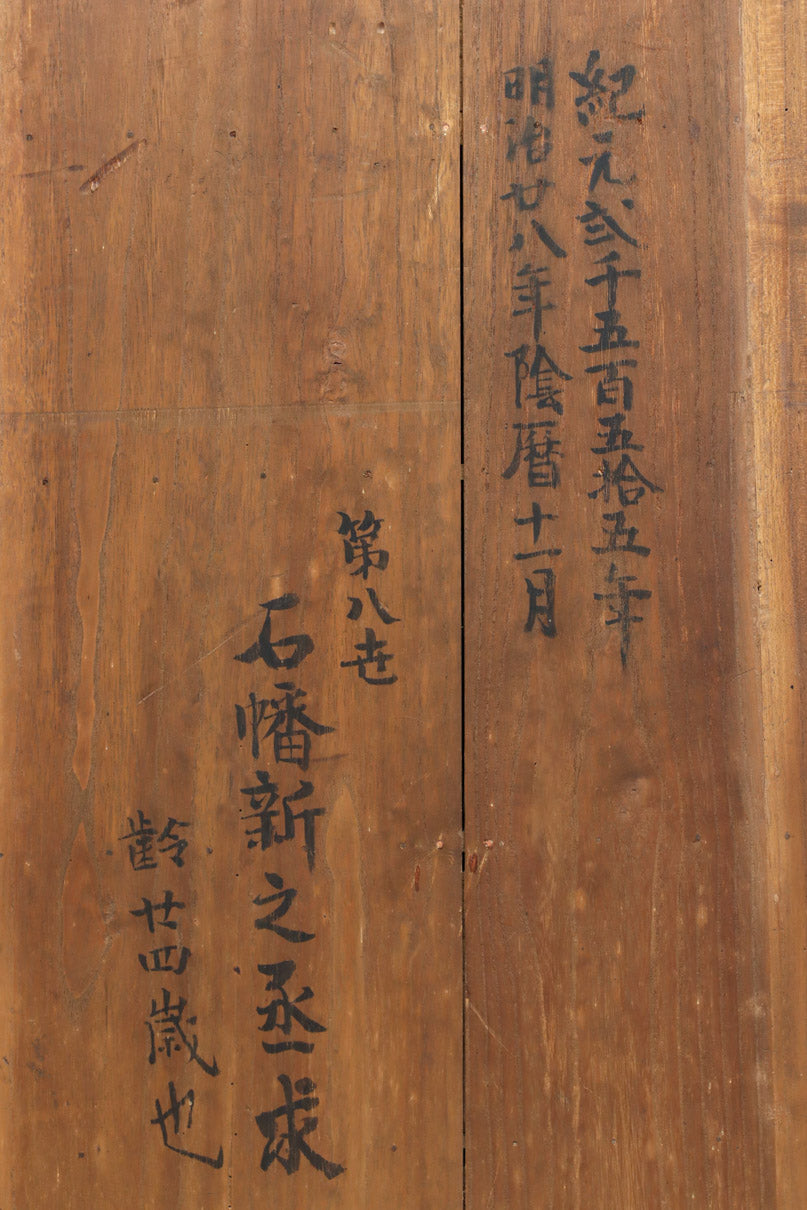 紀元弐千五百五拾五年
明治廿八年陰暦十一月
第八世
石幡新之丞求
齢廿四歳也